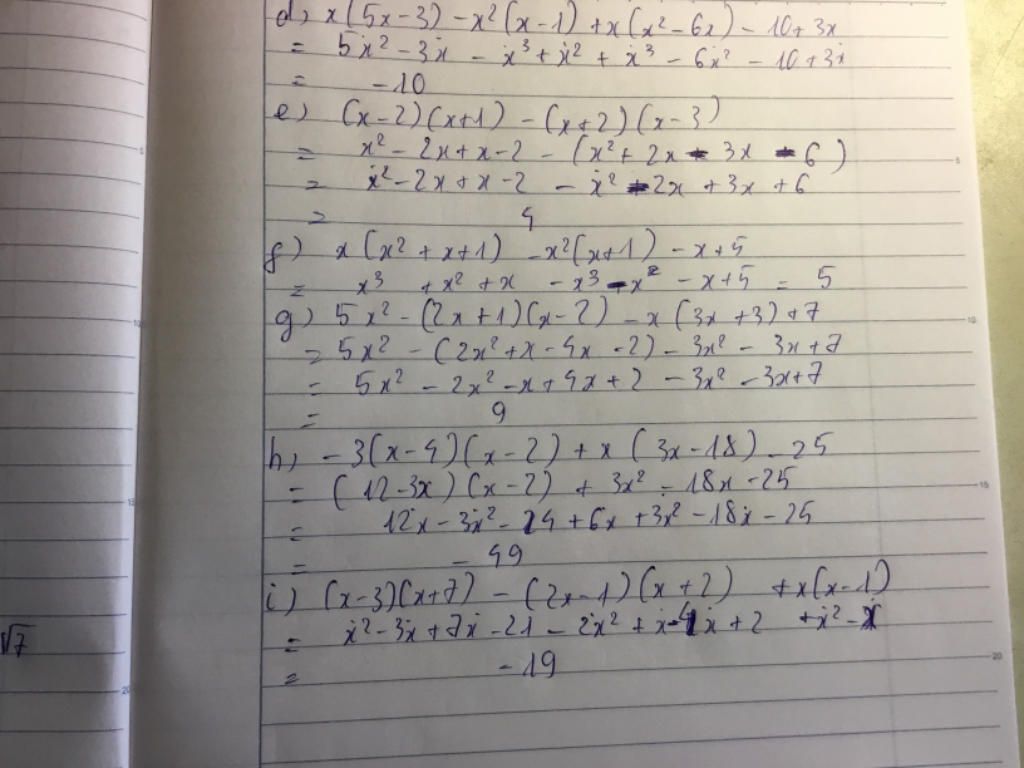 d) x(5x-3) - x²(x-1) + x(x²-6x) - 10 + 3x
= 5x² - 3x - x³ + x² + x³ - 6x² - 10 + 3x
= -10
e) (x-2)(x+1) - (x+2)(x-3)
= x² - 2x + x - 2 - (x² + 2x - 3x - 6)
= x² - 2x + x - 2 - x² - 2x + 3x + 6
= 4
f) x(x² + x + 1) - x²(x+1) - x + 5
= x³ + x² + x - x³ - x² - x + 5 = 5
g) 5x² - (2x+1)(x-2) - x(3x+3) + 7
= 5x² - (2x² + x - 4x - 2) - 3x² - 3x + 7
= 5x² - 2x² - x + 4x + 2 - 3x² - 3x + 7
= 9
h) -3(x-4)(x-2) + x(3x-18) - 25
= (12-3x)(x-2) + 3x² - 18x - 25
= 12x - 3x² - 24 + 6x + 3x² - 18x - 25
= -49
i) (x-3)(x+7) - (2x-1)(x+2) + x(x-1)
= x² - 3x + 7x - 21 - 2x² + x - 4x + 2 + x² - x
= -19
√7